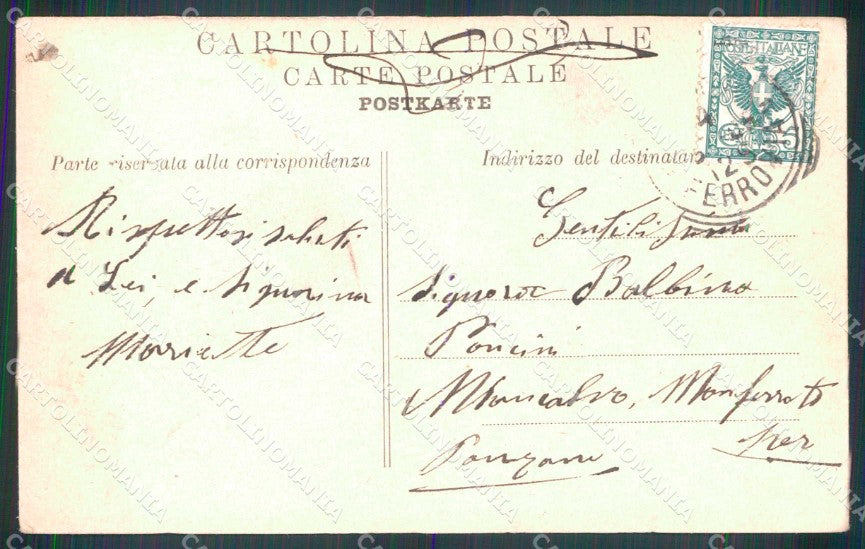 CARTOLINA POSTALE
CARTE POSTALE
POSTKARTE
Parte riservata alla corrispondenza
Indirizzo del destinatar
POSTE ITALIANE
12
FERROV
Rispettosi saluti
a Lei, e Signorina
Mariette
Gentilissima
Signora Balbina
Poncini
Moncalvo, Monferrato
per
Ponzano
CARTOLINOMANIA